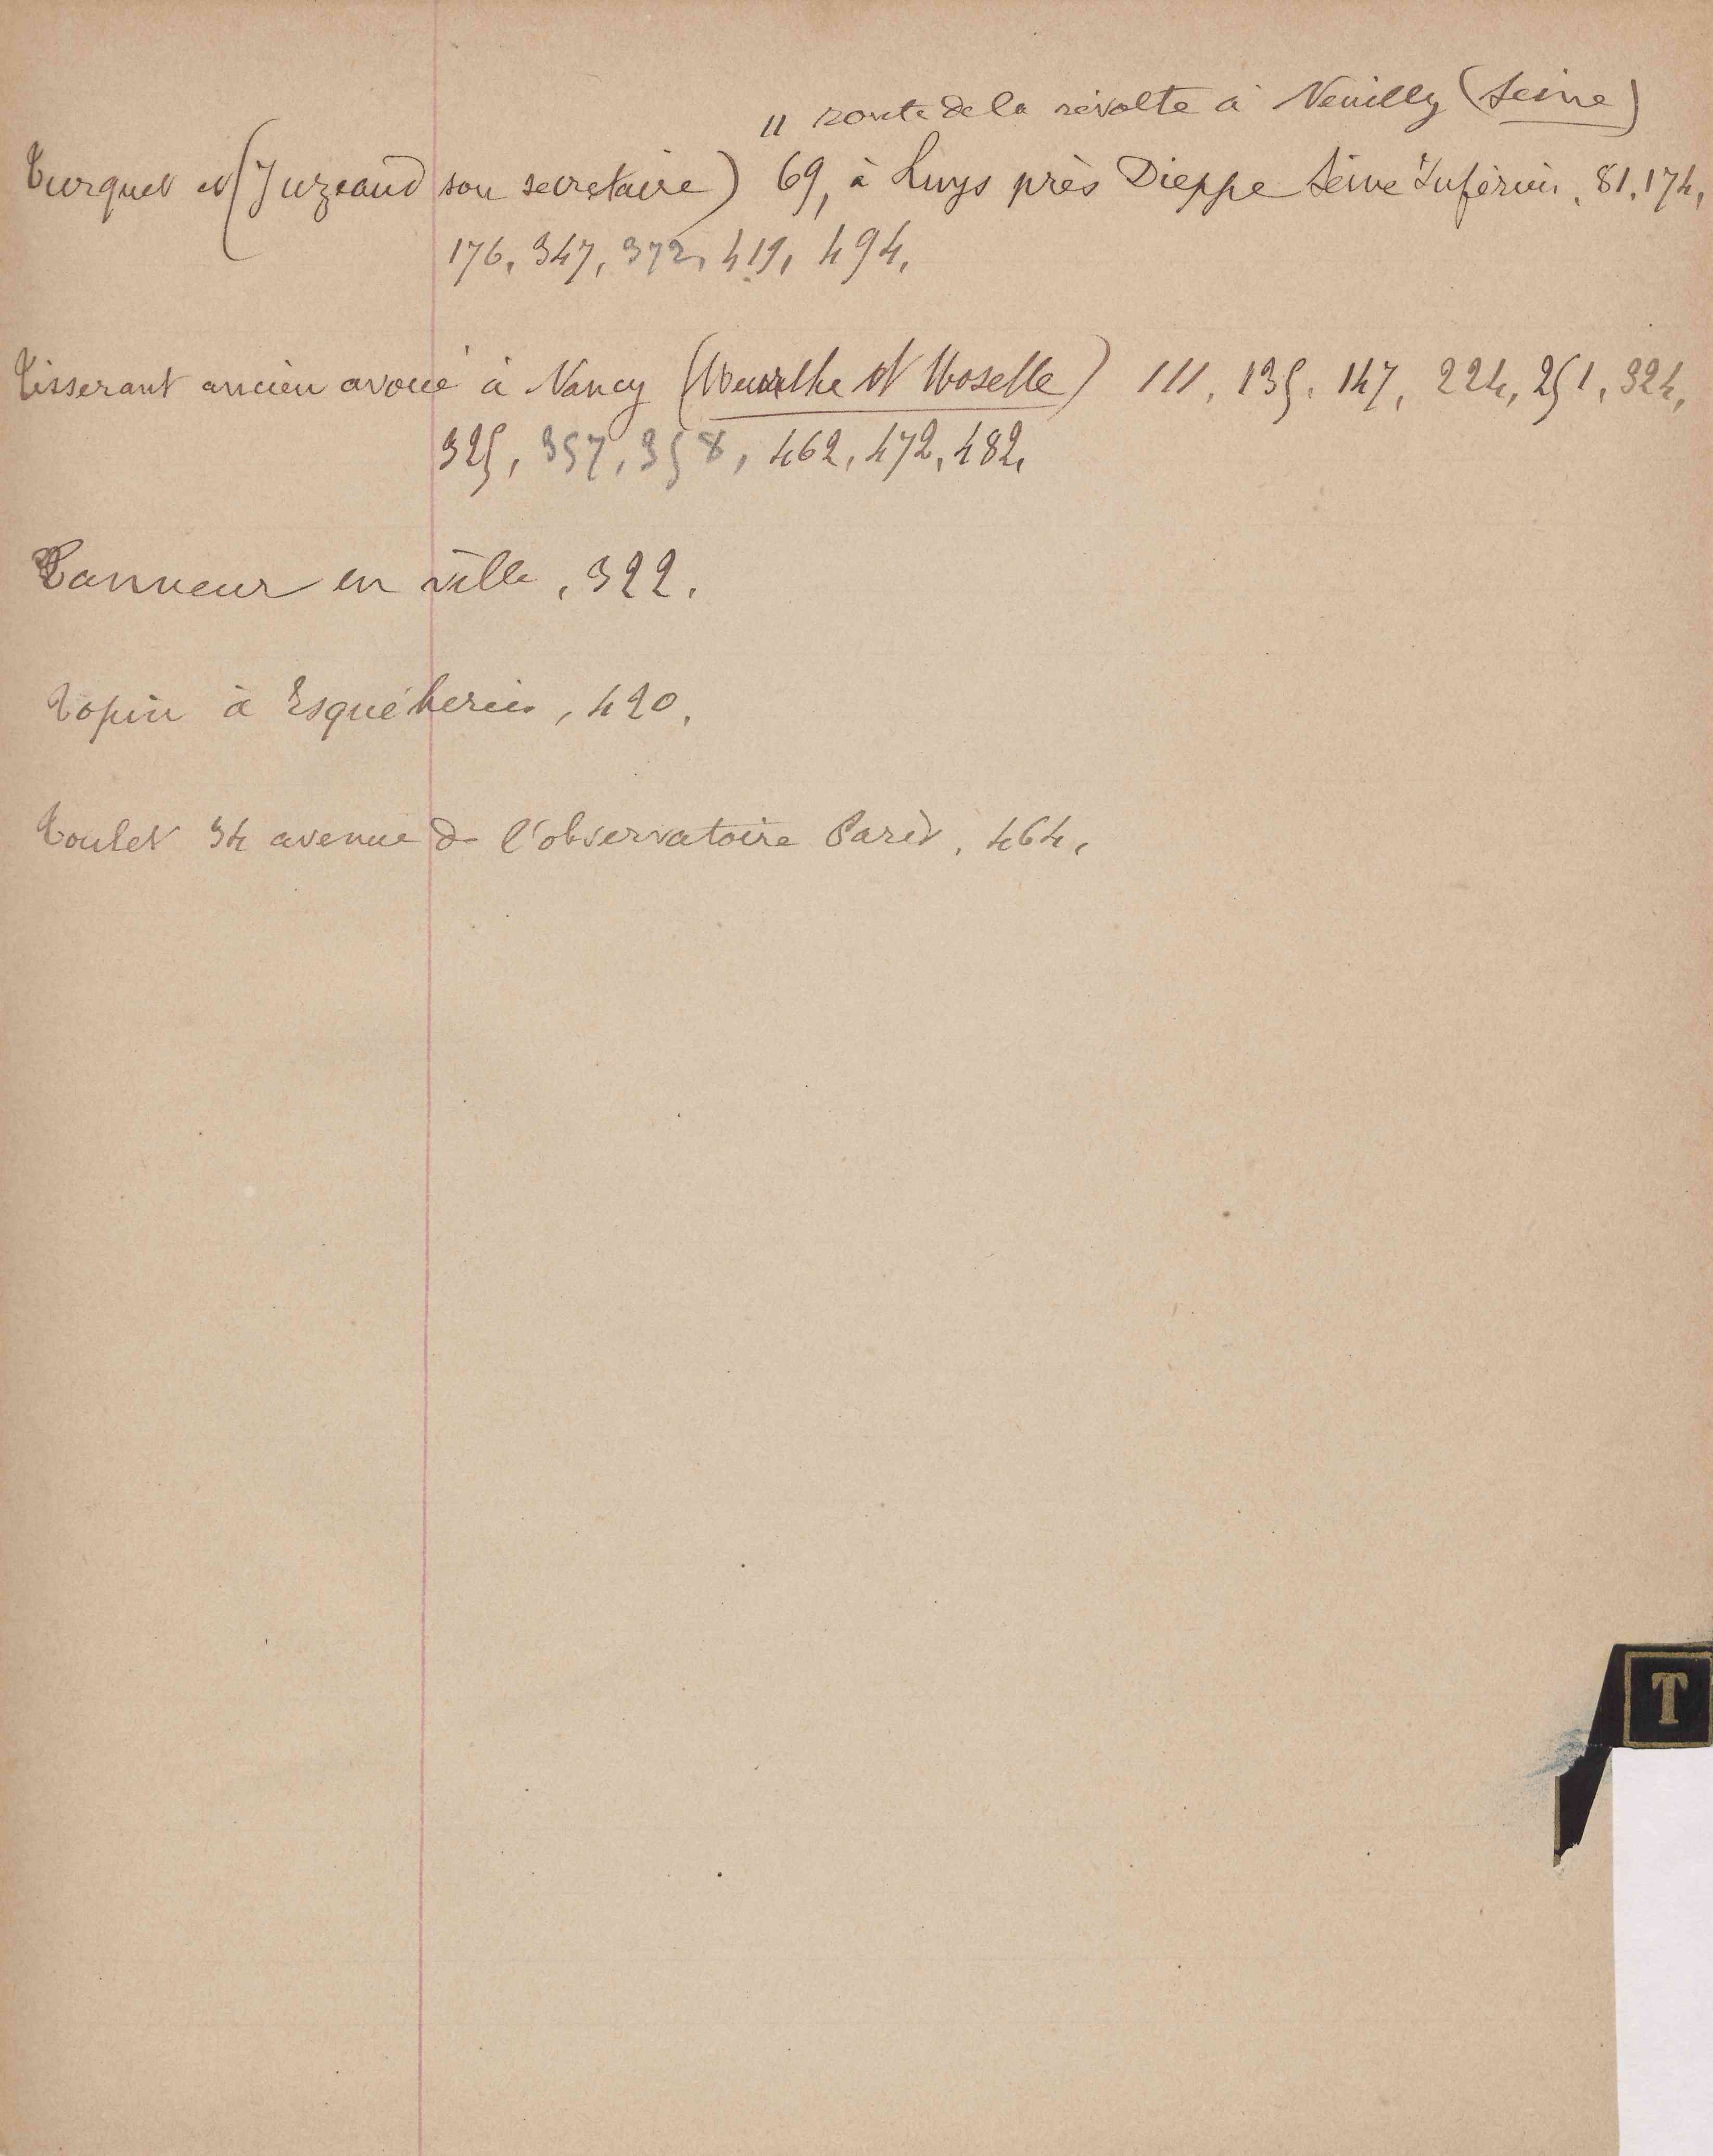 11 route de la révolte à Neuilly (Seine)
Turquet et (Juzeaud son secretaire) 69, à Puys près Dieppe Seine Inférieure, 81, 174,
176, 347, 372, 419, 494,
Tisserant ancien avoué à Nancy (Meurthe et Moselle) 111, 135, 147, 224, 251, 324,
325, 357, 358, 462, 472, 482,
Tanneur en ville, 322.
Topin à Esquéheries, 420,
Toulet 34 avenue de l'observatoire Paris, 464,
T